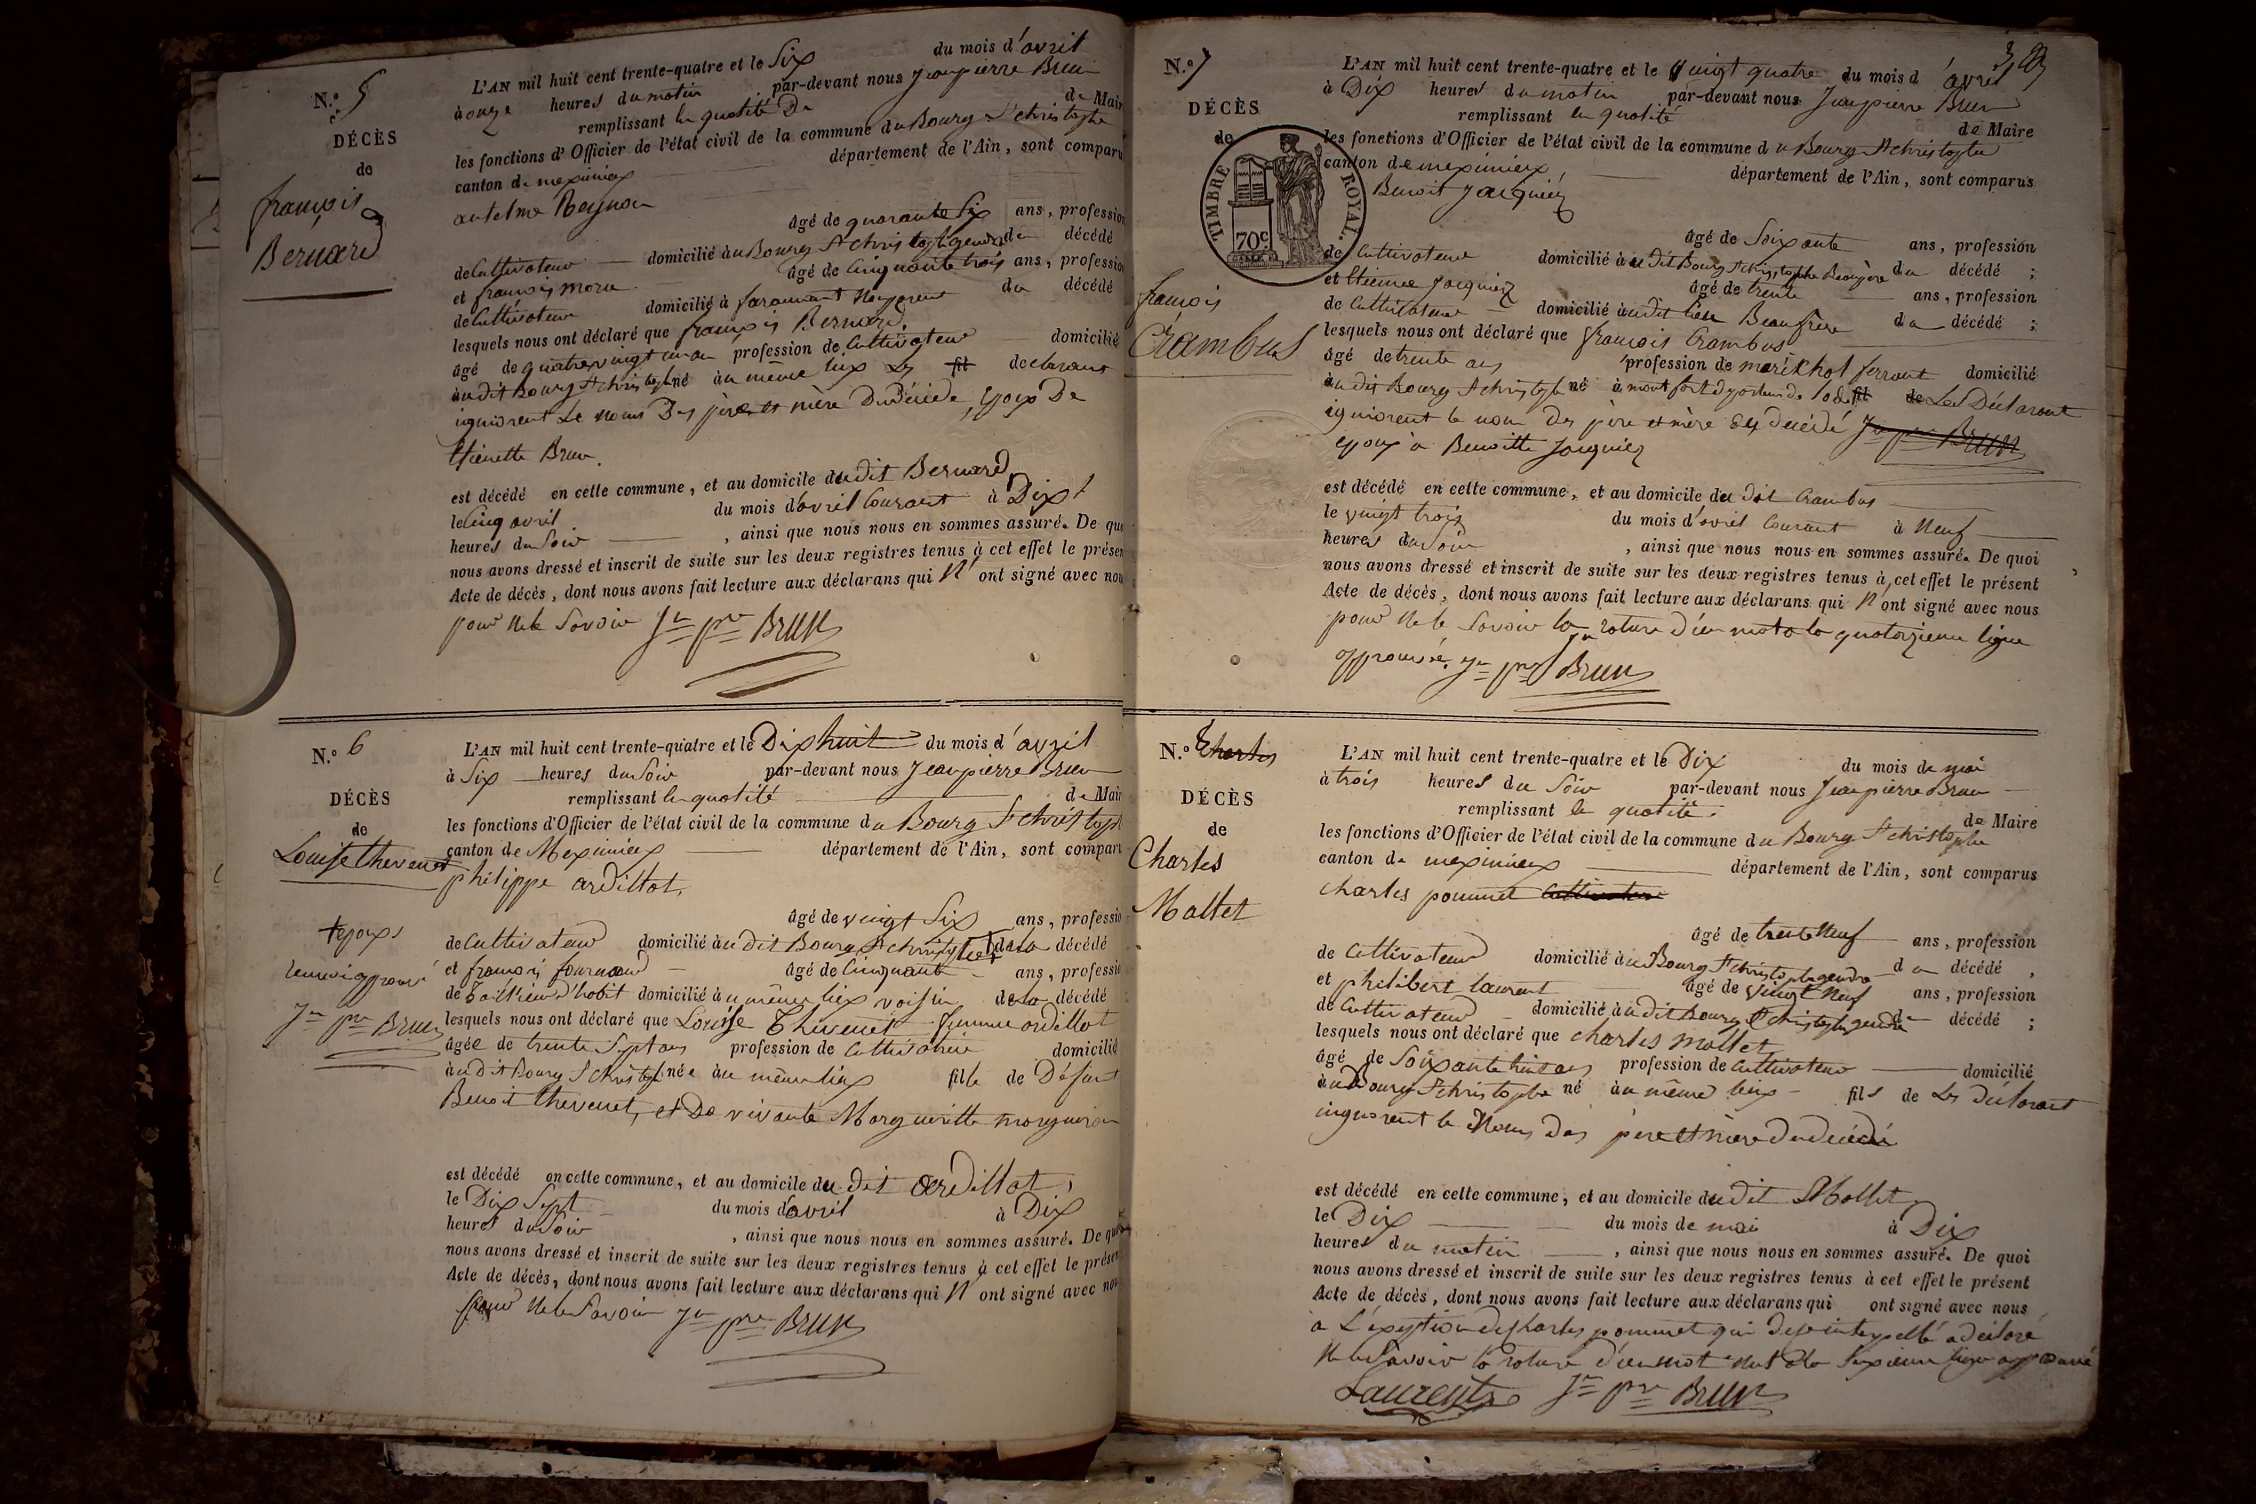 N.° 5
DÉCÈS
de
françois
Bernard
L'AN mil huit cent trente-quatre et le Six du mois d'avril
à onze heures du matin par-devant nous Jeanpierre Brun
remplissant la qualité De de Mair
les fonctions d'Officier de l'état civil de la commune du Bourg St christophe
canton de meximieux département de l'Ain, sont comparu
antelme Reynou
âgé de quarante Six ans, profession
de Cultivateur domicilié au Bourg St christophe gendre du décédé
et françois moru âgé de Cinquante trois ans, profession
de Cultivateur domicilié à faramant du décédé
lesquels nous ont déclaré que françois Bernard
âgé de quatrevingt un an profession de Cultivateur domicilié
au dit Bourg St christophe né au même lieux Les fil declarant
igniorent Le noms Des père et mère Du Décédé, Epoux De
Etienette Brun.
est décédé en cette commune, et au domicile du dit Bernard
le Cinq avril du mois d'avril Courant à Dix
heures du Soir , ainsi que nous nous en sommes assuré. De quo
nous avons dressé et inscrit de suite sur les deux registres tenus à cet effet le présen
Acte de décès, dont nous avons fait lecture aux déclarans qui N'ont signé avec nou
pour Ne le Savoir Jn pre BRUN
N.° 6
DÉCÈS
de
Louise thevenet
+ epoux
renvoi approuvé
Jn pre Brun
L'AN mil huit cent trente-quatre et le Dix huit du mois d'avril
à Six heures du Soir par-devant nous Jeanpierre Brun
remplissant la qualité de Mair
les fonctions d'Officier de l'état civil de la commune du Bourg St christoph
canton de Meximieux département de l'Ain, sont compar
philippe ardillot,
âgé de vingt Six ans, professio
de Cultivateur domicilié au dit Bourg St christophe + de la décédé
et françois fournand âgé de Cinquante ans, professio
de Tailleur d'habit domicilié au même lieux voisin de la décédé
lesquels nous ont déclaré que Louise Thevenet femme ardillot
âgée de trente Sept ans profession de Cultivatrice domicilié
au dit Bourg St christophe née au même lieux fille de Défunt
Benoit thevenet, et De vivante Margueritte
est décédé en cette commune, et au domicile du dit ardillot,
le Dix Sept du mois d'avril à Dix
heures du Soir , ainsi que nous nous en sommes assuré. De quo
nous avons dressé et inscrit de suite sur les deux registres tenus à cet effet le présen
Acte de décès, dont nous avons fait lecture aux déclarans qui N'ont signé avec nou
pour Ne le Savoir Jn pre BRUN
N.° 7
DÉCÈS
de
TIMBRE ROYAL.
70c.
françois
Crambus
L'AN mil huit cent trente-quatre et le vingt quatre du mois d'avril
à Dix heures du matin par-devant nous Jeanpierre Brun
remplissant la qualité de Maire
les fonctions d'Officier de l'état civil de la commune du Bourg St christophe
canton de meximieux département de l'Ain, sont comparus
Benoit Jacquiez
âgé de Soixante ans, profession
de Cultivateur domicilié au dit Bourg St christophe Beaupère du décédé ;
et Etienne Jacquiez âgé de trente ans, profession
de Cultivateur domicilié au dit lieu Beaufrère du décédé ;
lesquels nous ont déclaré que françois Crambus
âgé de trente ans profession de maréchal ferrant domicilié
au dit Bourg St christophe né à montfort fil de Les Déclarant
ignorent le nom Des père et mère du décédé Jn pre BRUN
epoux à Benoitte Jacquiez
est décédé en cette commune, et au domicile du dit Crambus
le vingt trois du mois d'avril Courant à Neuf
heures du Soir , ainsi que nous nous en sommes assuré. De quoi
nous avons dressé et inscrit de suite sur les deux registres tenus à cet effet le présent
Acte de décès, dont nous avons fait lecture aux déclarans qui N'ont signé avec nous
pour Ne le Savoir la rature d'un mot a la quatorzieme ligne
approuvé. Jn pre BRUN
N.° 8 Charles
DÉCÈS
de
Charles
Mollet
L'AN mil huit cent trente-quatre et le Dix du mois de mai
à trois heures du Soir par-devant nous Jeanpierre Brun
remplissant la qualité de Maire
les fonctions d'Officier de l'état civil de la commune du Bourg St christophe
canton de meximieux département de l'Ain, sont comparus
charles pommet Cultivateur
âgé de trente Neuf ans, profession
de Cultivateur domicilié au Bourg St christophe gendre du décédé ,
et philibert laurent âgé de vingt Neuf ans, profession
de Cultivateur domicilié au dit Bourg St christophe gendre du décédé ;
lesquels nous ont déclaré que charles mollet
âgé de Soixante huit ans profession de Cultivateur domicilié
au Bourg St christophe né au même lieux fils de Les Déclarant
ingnorent le Noms Des père et mère Du décédé
est décédé en cette commune, et au domicile du dit Mollet
le Dix du mois de mai à Dix
heures du matin , ainsi que nous nous en sommes assuré. De quoi
nous avons dressé et inscrit de suite sur les deux registres tenus à cet effet le présent
Acte de décès, dont nous avons fait lecture aux déclarans qui ont signé avec nous
à L'exeption de charles pommet qui De ce interpellé a déclaré
Ne le Savoir la rature d'un mot a la Sixieme ligne approuvé
Laurent Jn pre BRUN